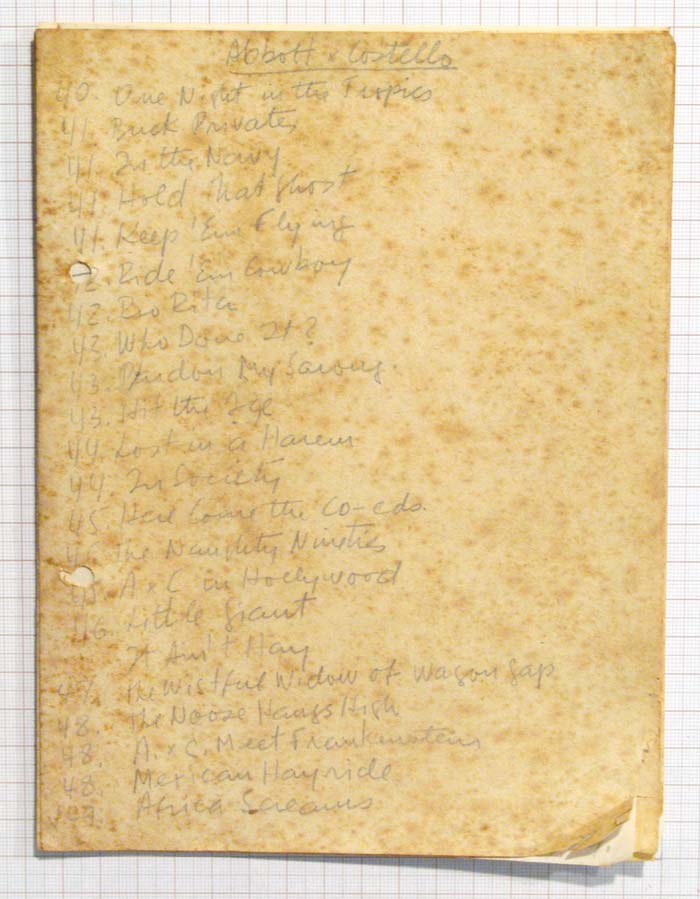 Abbott & Costello
40. One Night in the Tropics
41. Buck Privates
41. In the Navy
41. Hold That Ghost
41. Keep 'Em Flying
42. Ride 'em Cowboy
42. Rio Rita
43. Who Done It?
43. Pardon My Sarong.
43. Hit the Ice
44. Lost in a Harem
44. In Society
45. Here Come the Co-eds.
45. The Naughty Nineties
45. A & C in Hollywood
46. Little Giant
It Ain't Hay
47. The Wistful Widow of Wagon Gap
48. The Noose Hangs High
48. A. & C. Meet Frankenstein
48. Mexican Hayride
49. Africa Screams